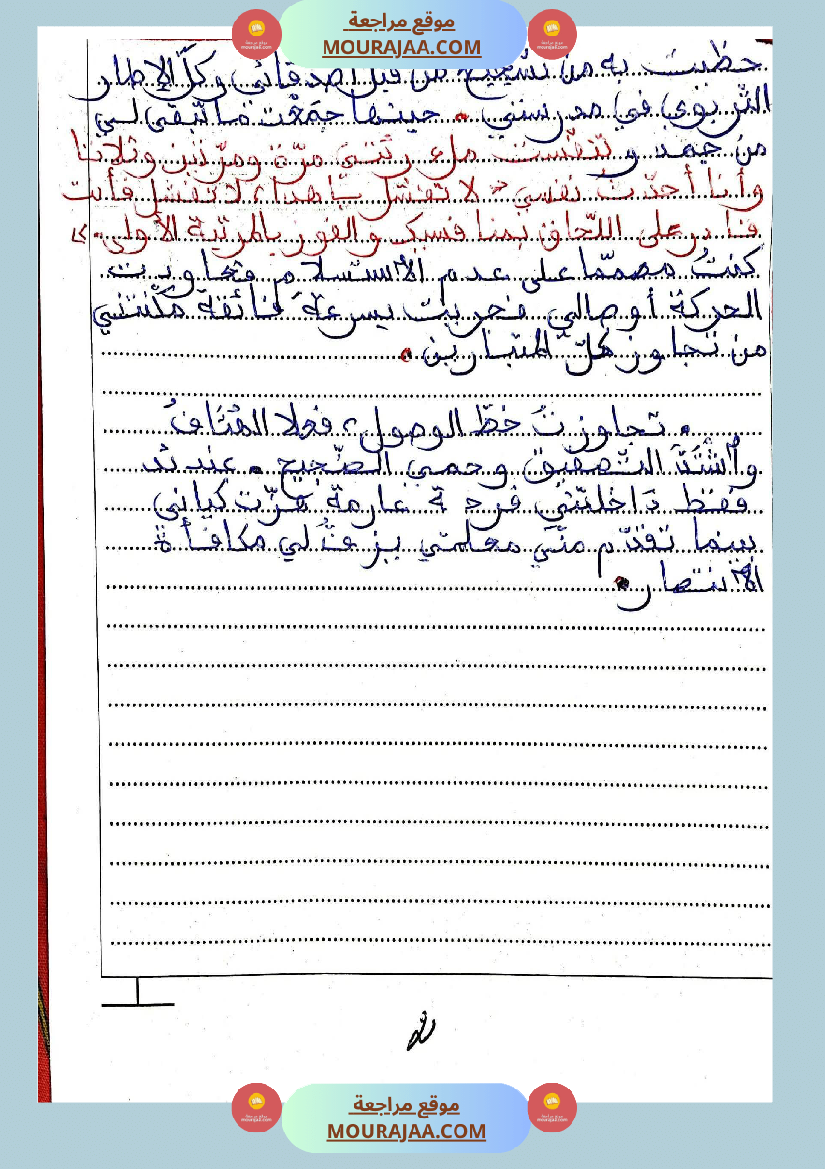 موقع مراجعة
MOURAJAA.COM
حظيت به من تشجيع من قبل أصدقائي وكلّ الإطار
التّربوي في مدرستي. حينها جمّعْت ما تبقى لي
من جهد و تنفّست ملء رئتيّ مرّة ومرّتين وثلاثا
وأنا أحدّث نفسي " لا تفشل يا هذا، لا تفشل فأنت
قادر على اللّحاق بمنافسيك والفوز بالمرتبة الأولى. "
كنتُ مصمّما على عدم الاستسلام فتجاوبت
الحركة أوصالي فجريت بسرعة فائقة مكّنتني
من تجاوز كلّ المتبارين.
. تجاوزتُ خطّ الوصول، فعلا الهُتَافُ
وٱشْتَدَّ التّصفيق وحمي الضّجيج. عندئذ
فقط دَاخلتني فرحة عارمة هزّت كياني
بينما تقدّم منّيَ معلمتي يزفُّ لي مكافأة
الانتصار.
موقع مراجعة
MOURAJAA.COM